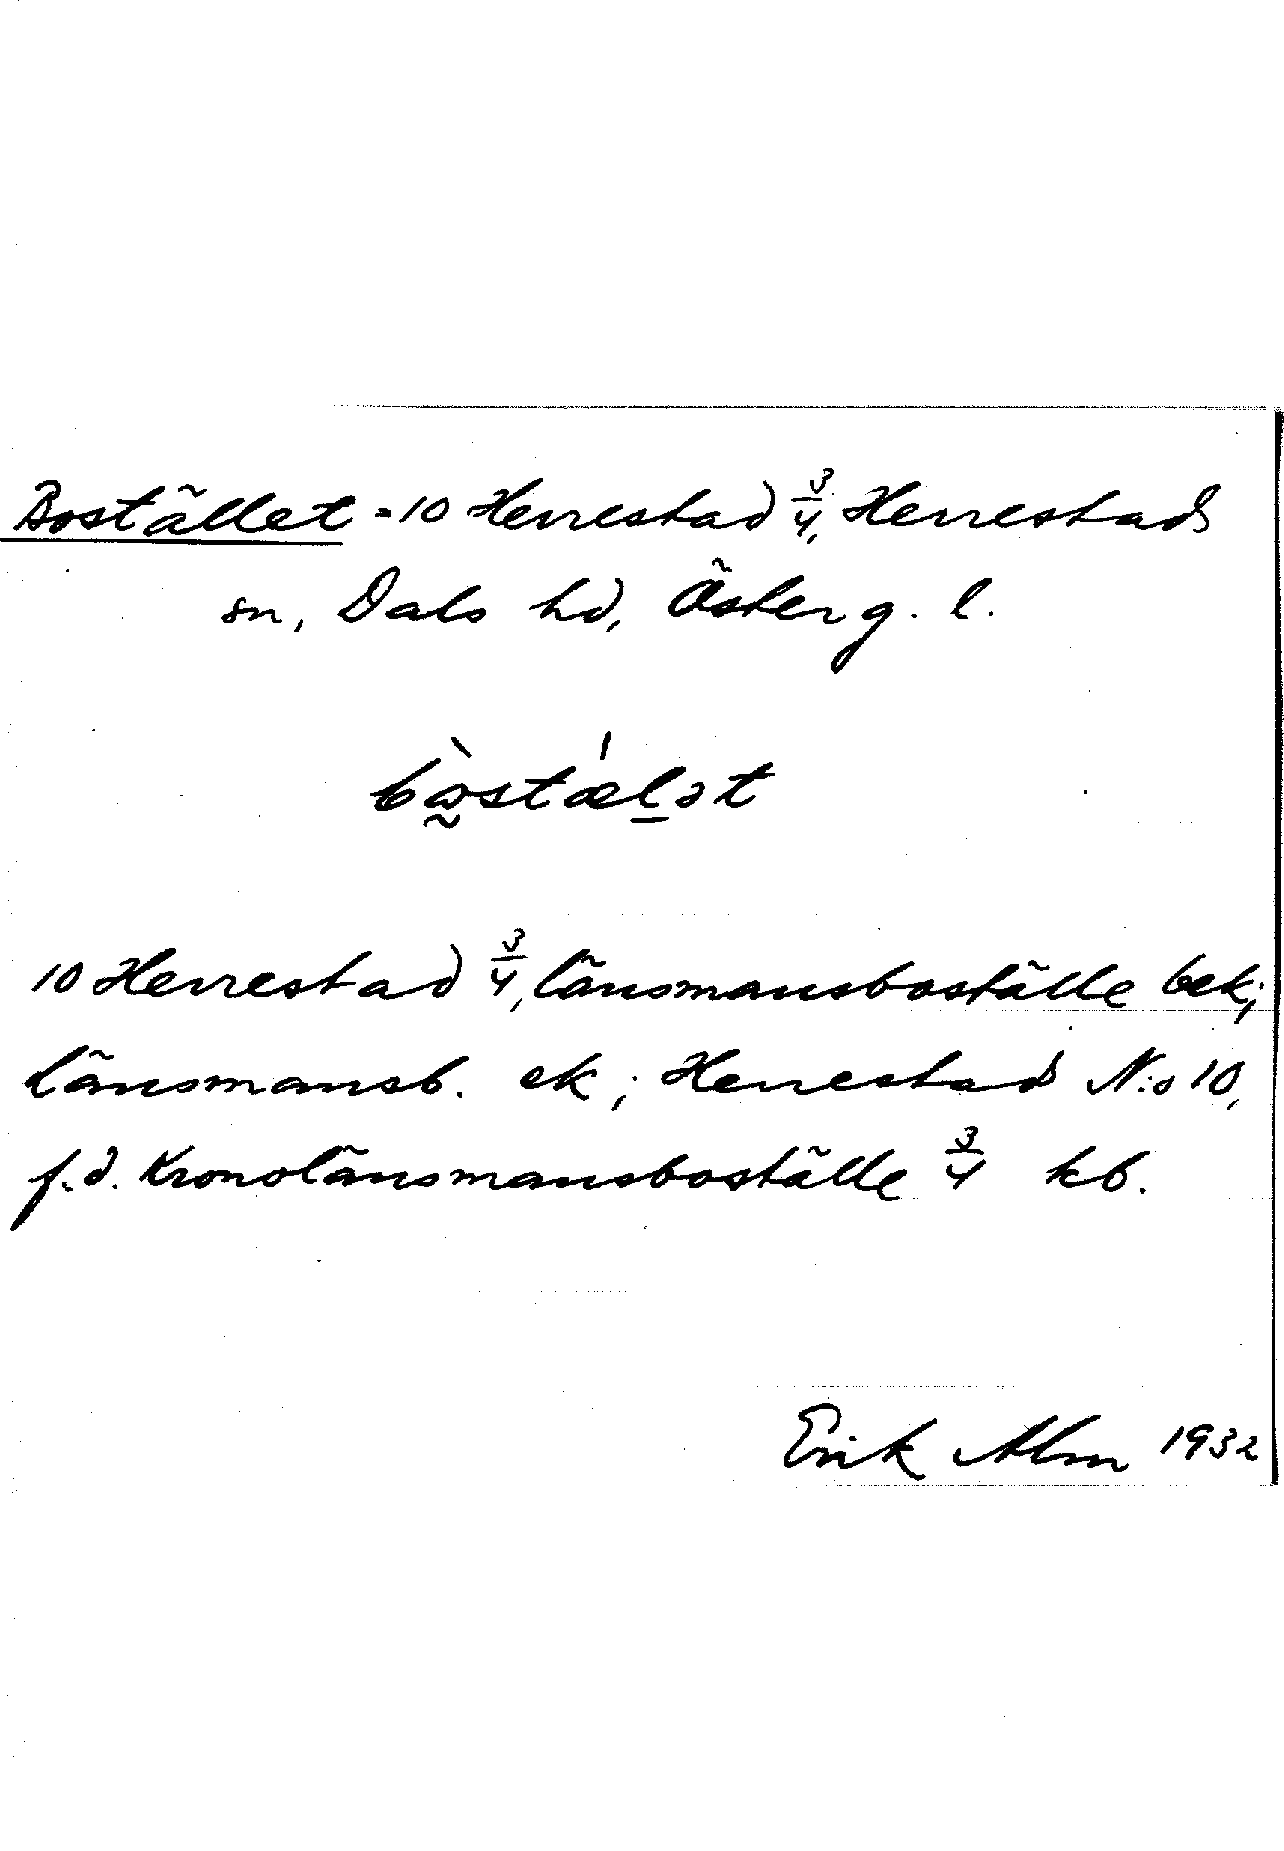 Bostället = 10 Herrestad 3/4, Herrestads
sn, Dals hd, Österg. l.
bòstæ̀lət
10 Herrestad 3/4, länsmansboställe bek;
länsmansb. ek; Herrestad N:o 10,
f.d. Kronolänsmansboställe 3/4 kb.
Erik Alm 1932